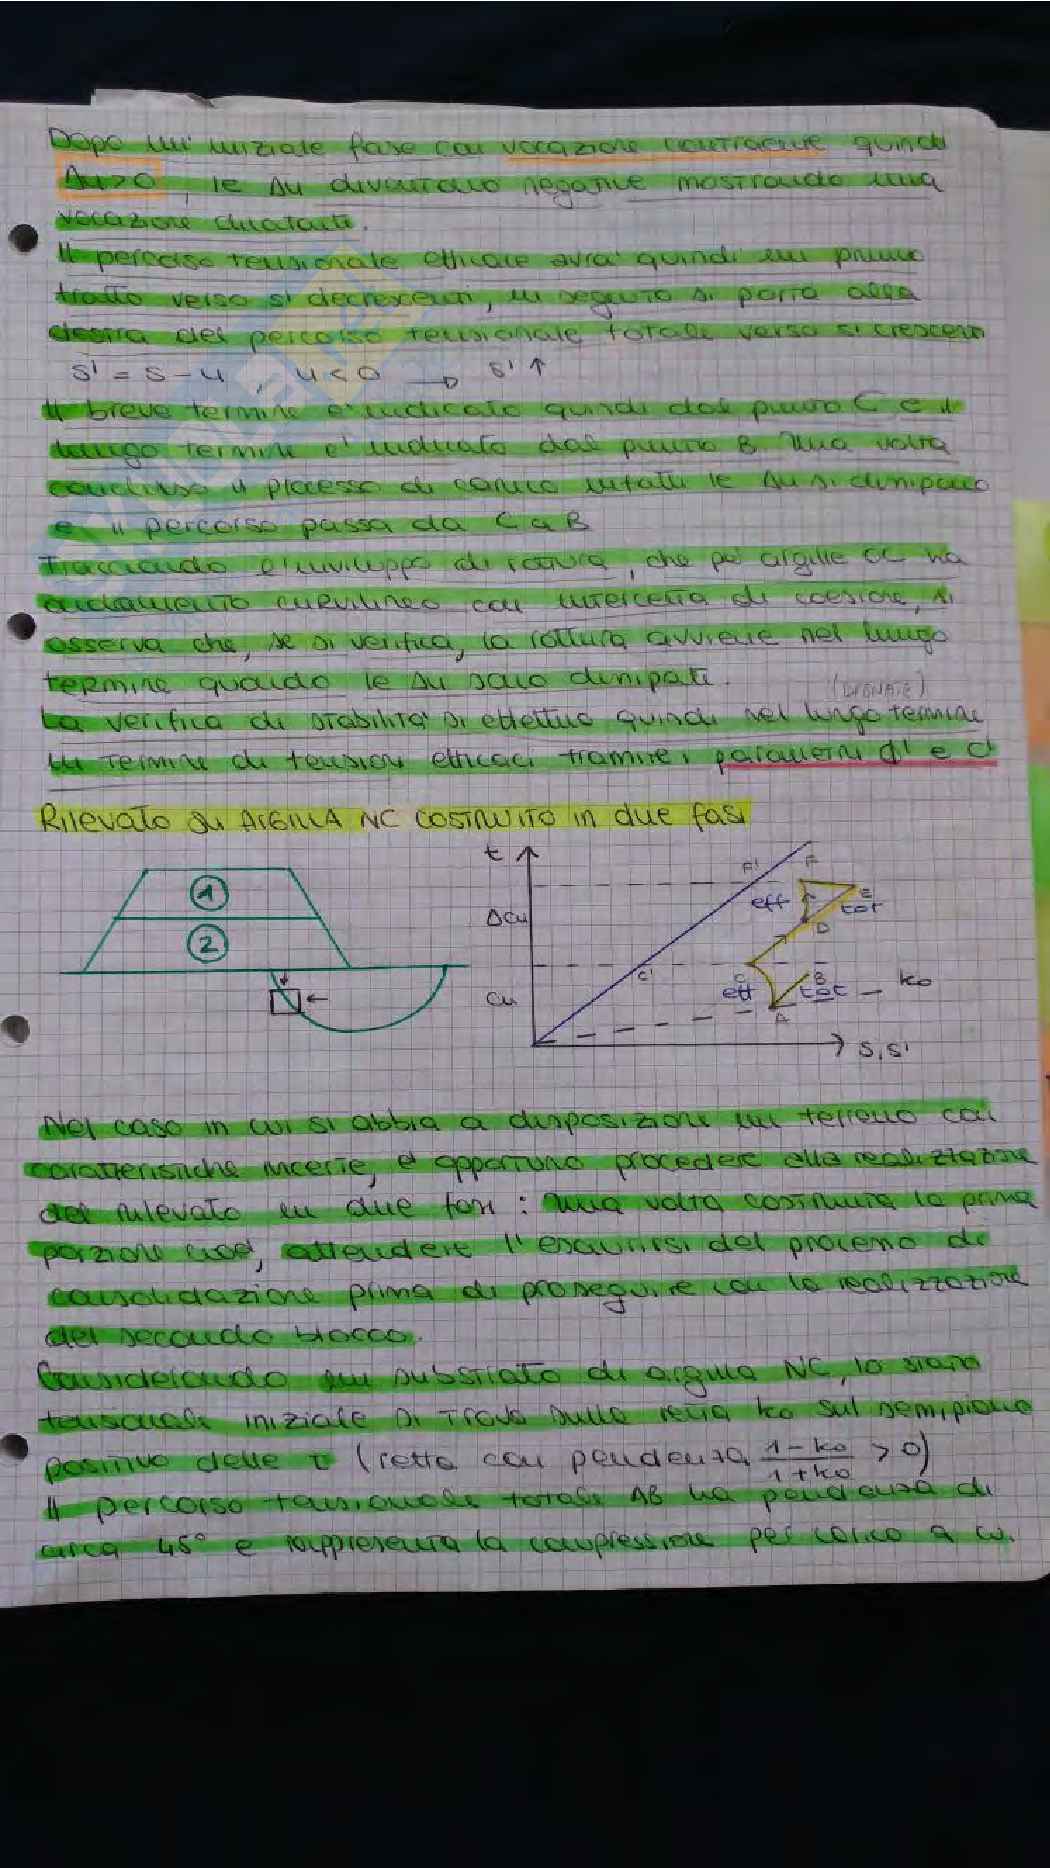 Dopo un' iniziale fase con vocazione contraente quindi
Δu>0, le Δu diventano negative mostrando una
vocazione dilatante.
Il percorso tensionale efficace avrà quindi un primo
tratto verso s' decrescenti, in seguito si porta alla
destra del percorso tensionale totale verso s' crescenti
s' = s - u , u < 0 → s' ↑
Il breve termine è indicato quindi dal punto C e il
lungo termine è indicato dal punto B. Una volta
concluso il processo di carico infatti le Δu si dissipano
e il percorso passa da C a B
Tracciando l'inviluppo di rottura, che per argille OC ha
andamento curvilineo con intercetta di coesione, si
osserva che, se si verifica, la rottura avviene nel lungo
termine quando le Δu sono dissipate.
(DRENATE)
La verifica di stabilità si effettua quindi nel lungo termine
in termini di tensioni efficaci tramite i parametri φ' e c'
Rilevato su ARGILLA NC COSTRUITO in due fasi
1
2
t
ΔCu
Cu
F'
F
eff
E
tot
D
C'
C
eff
B
tot
A
K0
s,s'
Nel caso in cui si abbia a disposizione un terreno con
caratteristiche incerte, è opportuno procedere alla realizzazione
del rilevato in due fasi : una volta costruita la prima
porzione cioè, attendere l'esaurirsi del processo di
consolidazione prima di proseguire con la realizzazione
del secondo blocco.
Considerando un substrato di argilla NC, lo stato
tensionale iniziale si trova sulla retta k0 sul semipiano
positivo delle t (retta con pendenza 1-k0/1+k0 > 0)
Il percorso tensionale totale AB ha pendenza di
circa 45° e rappresenta la compressione per carico a